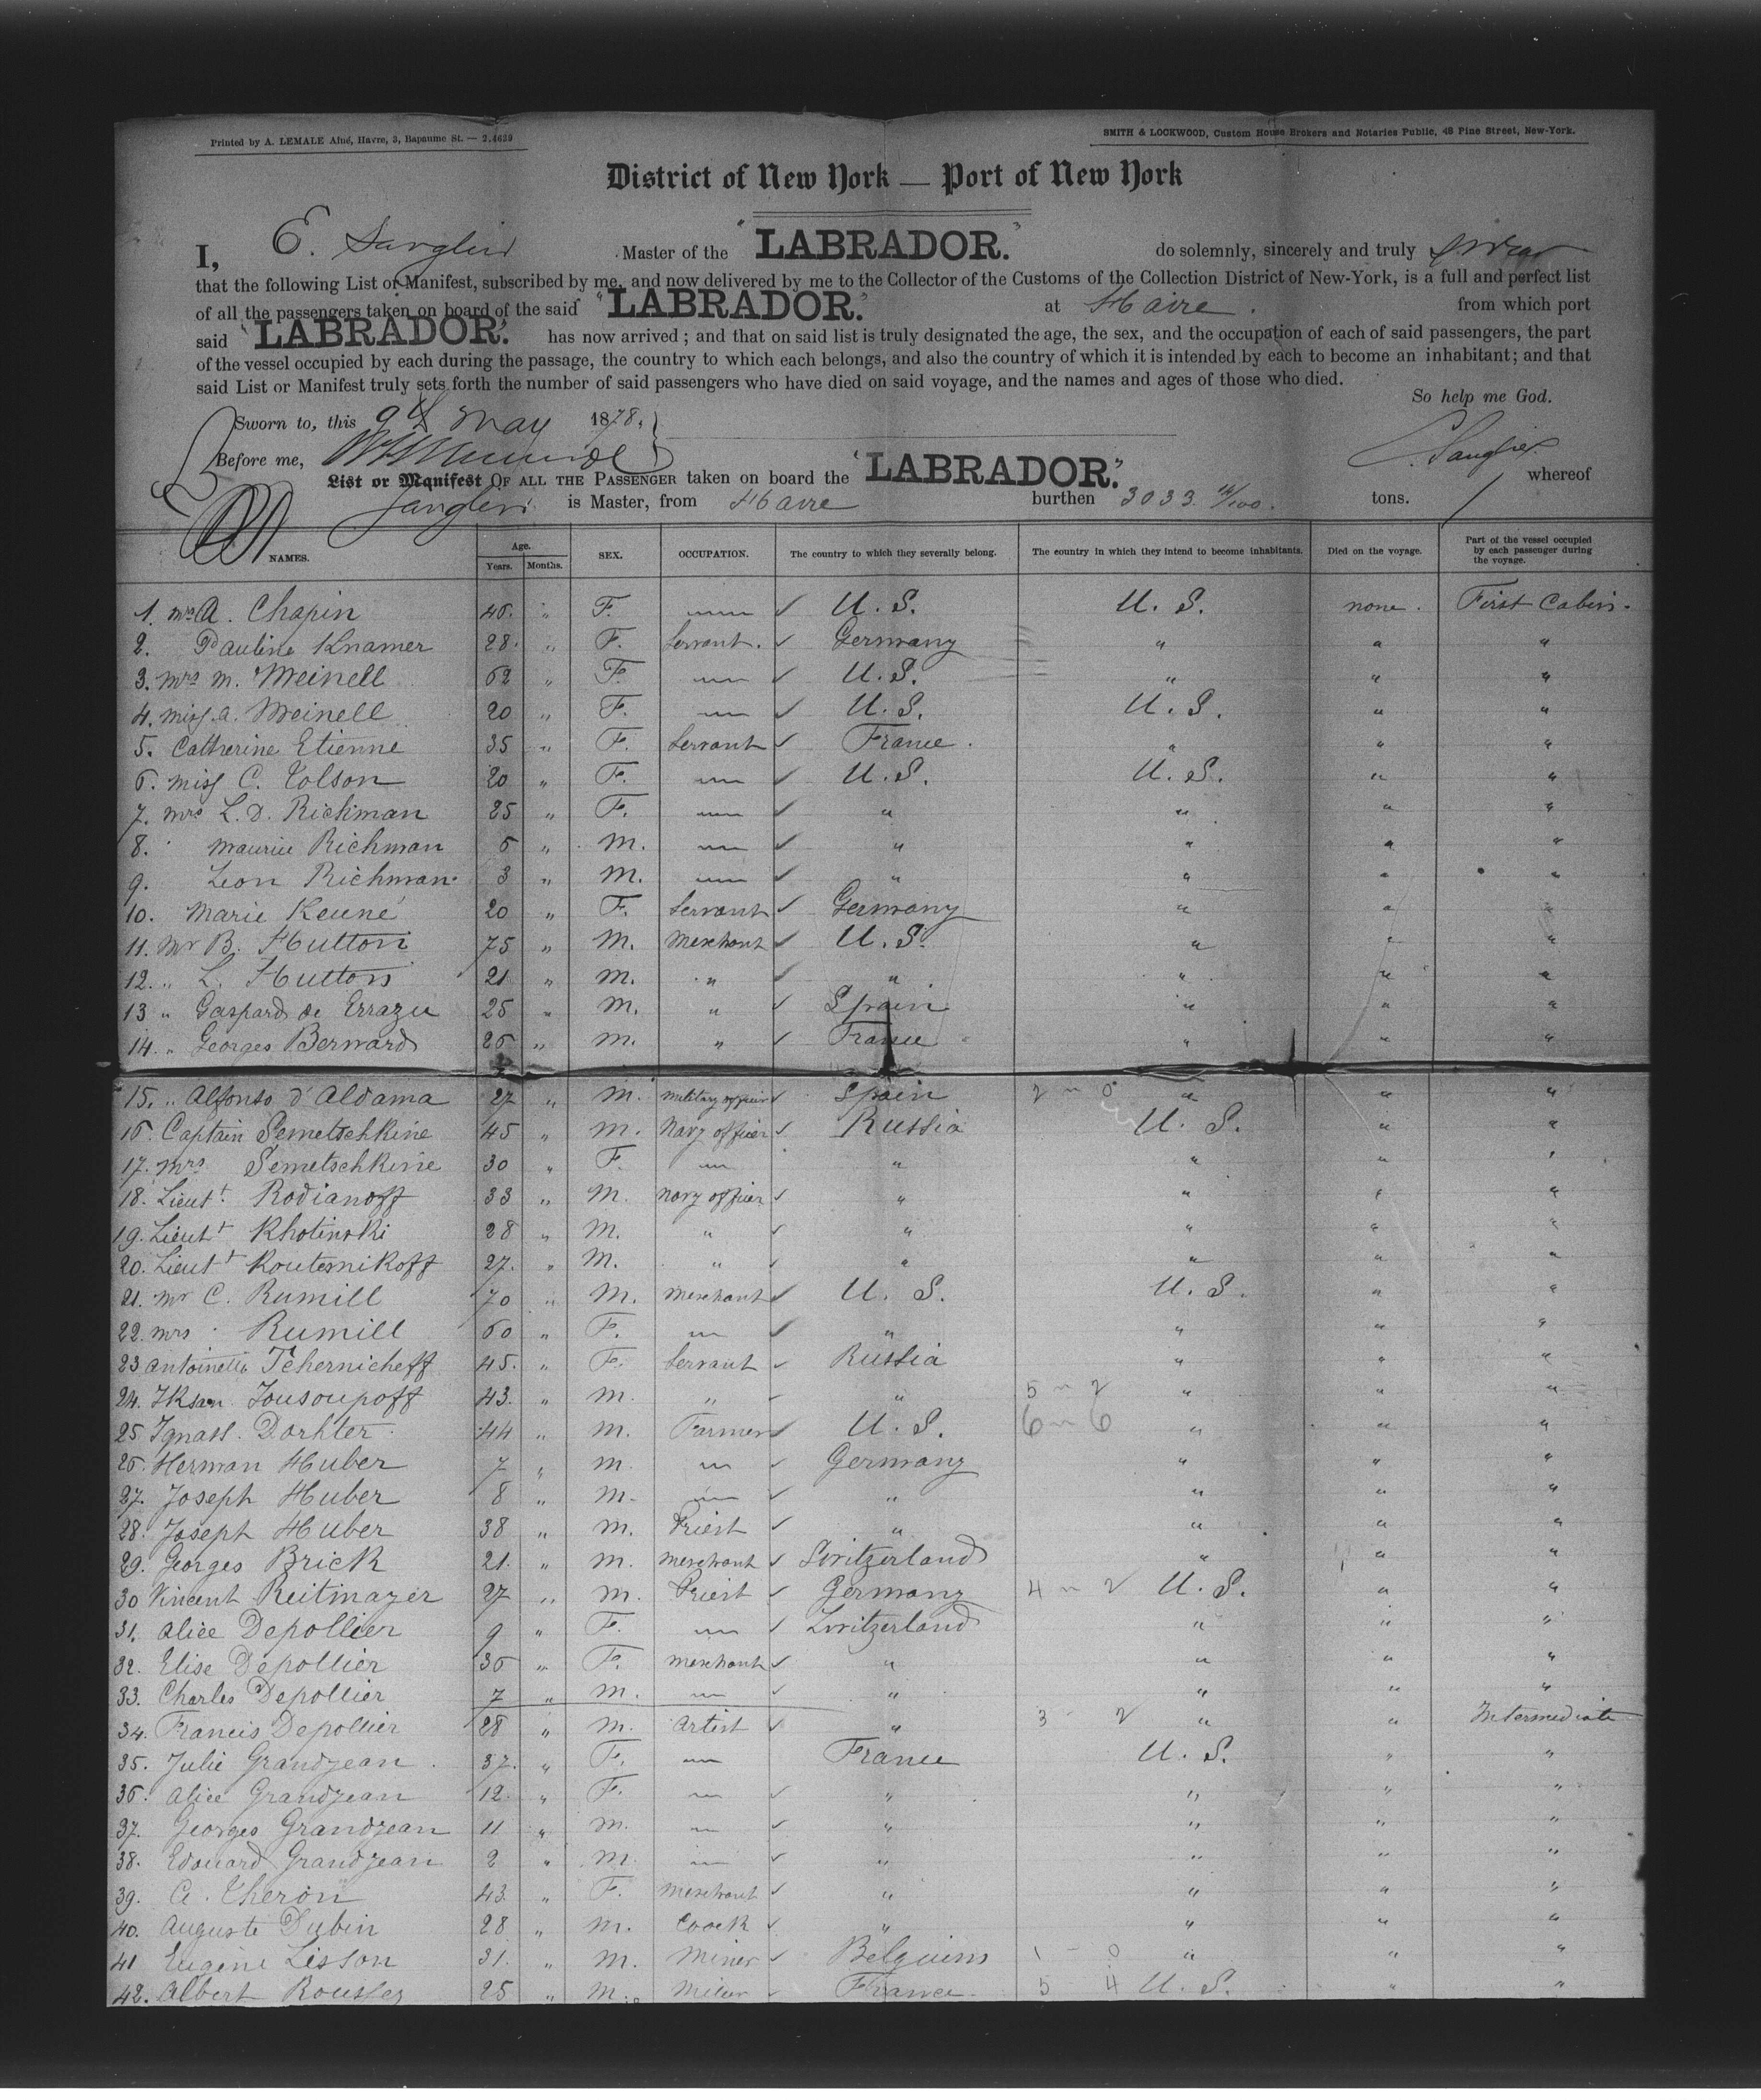 Printed by A. LEMALE Aîné, Havre, 3, Bapaume St. — 2.4639
SMITH & LOCKWOOD, Custom House Brokers and Notaries Public, 48 Pine Street, New-York.
District of New York — Port of New York
I, E. Sanglier Master of the "LABRADOR." do solemnly, sincerely and truly swear
that the following List or Manifest, subscribed by me, and now delivered by me to the Collector of the Customs of the Collection District of New-York, is a full and perfect list
of all the passengers taken on board of the said "LABRADOR." at Havre. from which port
said "LABRADOR." has now arrived; and that on said list is truly designated the age, the sex, and the occupation of each of said passengers, the part
of the vessel occupied by each during the passage, the country to which each belongs, and also the country of which it is intended by each to become an inhabitant; and that
said List or Manifest truly sets forth the number of said passengers who have died on said voyage, and the names and ages of those who died.
So help me God.
Sworn to, this 9th May 1878.
Before me, E. Sanglier
List or Manifest OF ALL THE PASSENGER taken on board the "LABRADOR." whereof
Sanglier is Master, from Havre burthen 3033 tons.
NAMES. Age. Years. Months. SEX. OCCUPATION. The country to which they severally belong. The country in which they intend to become inhabitants. Died on the voyage. Part of the vessel occupied by each passenger during the voyage.
1. Mrs A. Chapin 46. " F. — ✓ U. S. U. S. none. First Cabin.
2. Pauline Knamer 28. " F. Servant. ✓ Germany " " "
3. Mrs M. Meinell 62 " F. — ✓ U. S. " " "
4. Miss A. Meinell 20 " F. — ✓ U. S. U. S. " "
5. Catherine Etienne 35 " F. Servant ✓ France. " " "
6. Miss C. Tolson 20 " F. — ✓ U. S. U. S. " "
7. Mrs L. D. Richman 25 " F. — ✓ " " " "
8. Maurice Richman 5 " M. — ✓ " " " "
9. Leon Richman 3 " M. — ✓ " " " "
10. Marie Keuné 20 " F. Servant ✓ Germany " " "
11. Mr B. Hutton 75 " M. Merchant ✓ U. S. " " "
12. " L. Hutton 21 " M. " ✓ " " " "
13 " Gaspard de Errazu 25 " M. " ✓ Spain " " "
14. " Georges Bernard 26 " M. " ✓ France " " "
15. " Alfonso d'Aldama 27 " M. Military officer ✓ Spain 2 – 0 " " "
16. Captain Semetschkine 45 " M. Navy officer ✓ Russia U. S. " "
17. Mrs Semetschkine 30 " F. — " " " "
18. Lieutt. Rodianoff 33 " M. Navy officer ✓ " " " "
19. Lieutt Khotinski 28 " M. " ✓ " " " "
20. Lieutt Kouternikoff 27. " M. " ✓ " " " "
21. Mr C. Rumill 70 " M. Merchant ✓ U. S. U. S. " "
22. Mrs Rumill 60 " F. — ✓ " " " "
23 Antoinette Tchernicheff 45. " F. Servant ✓ Russia " " "
24. Iksan Jousoupoff 43. " M. " ✓ " 5 – 2 " " "
25. Ignass. Dorhter 44 " M. Farmer ✓ U. S. 6 – 6 " " "
26. Herman Huber 7 " M. — ✓ Germany " " "
27. Joseph Huber 8 " M. — ✓ " " " "
28. Joseph Huber 38 " M. Priest ✓ " " " "
29. Georges Brick 21. " M. Merchant ✓ Switzerland " " "
30 Vincent Reitmayer 27 " M. Priest ✓ Germany 4 – 2 U. S. " "
31. Alice Depollier 9 " F. — ✓ Switzerland " " "
32. Elise Depollier 36 " F. Merchant ✓ " " " "
33. Charles Depollier 7 " M. — ✓ " " " "
34. Francis Depollier 28 " M. Artist ✓ " 3 - 2 " " Intermediate
35. Julie Grandjean 37. " F. — France U. S. " "
36. Alice Grandjean 12. " F. — ✓ " " " "
37. Georges Grandjean 11 " M. — ✓ " " " "
38. Edouard Grandjean 2 " M. — ✓ " " " "
39. C. Theron 43. " F. Merchant ✓ " " " "
40. Auguste Dubin 28 " M. Coock ✓ " " " "
41 Eugéne Lisson 31. " M. Miner ✓ Belguim 1 – 0 " " "
42. Albert Roussey 25 " M. Miner ✓ France. 5 4 U. S. " "